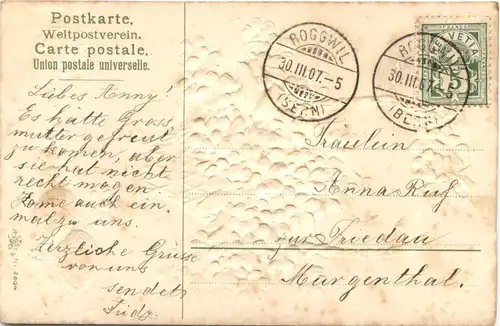 Postkarte.
Weltpostverein.
Carte postale.
Union postale universelle.
Liebes Anny!
Es hatte Gross
mutter gefreut
zu komen, aber
sie hat nicht
recht mögen.
Kome auch ein
mal zu uns.
Herzliche Grüsse
von uns
sendet
ROGGWIL
30.III.07.-5
(BERN)
ROGGWIL
30.III.07.-5
(BERN)
HELVETIA
5
Fräulein
Anna Ruf
zur Friedau
Murgenthal.